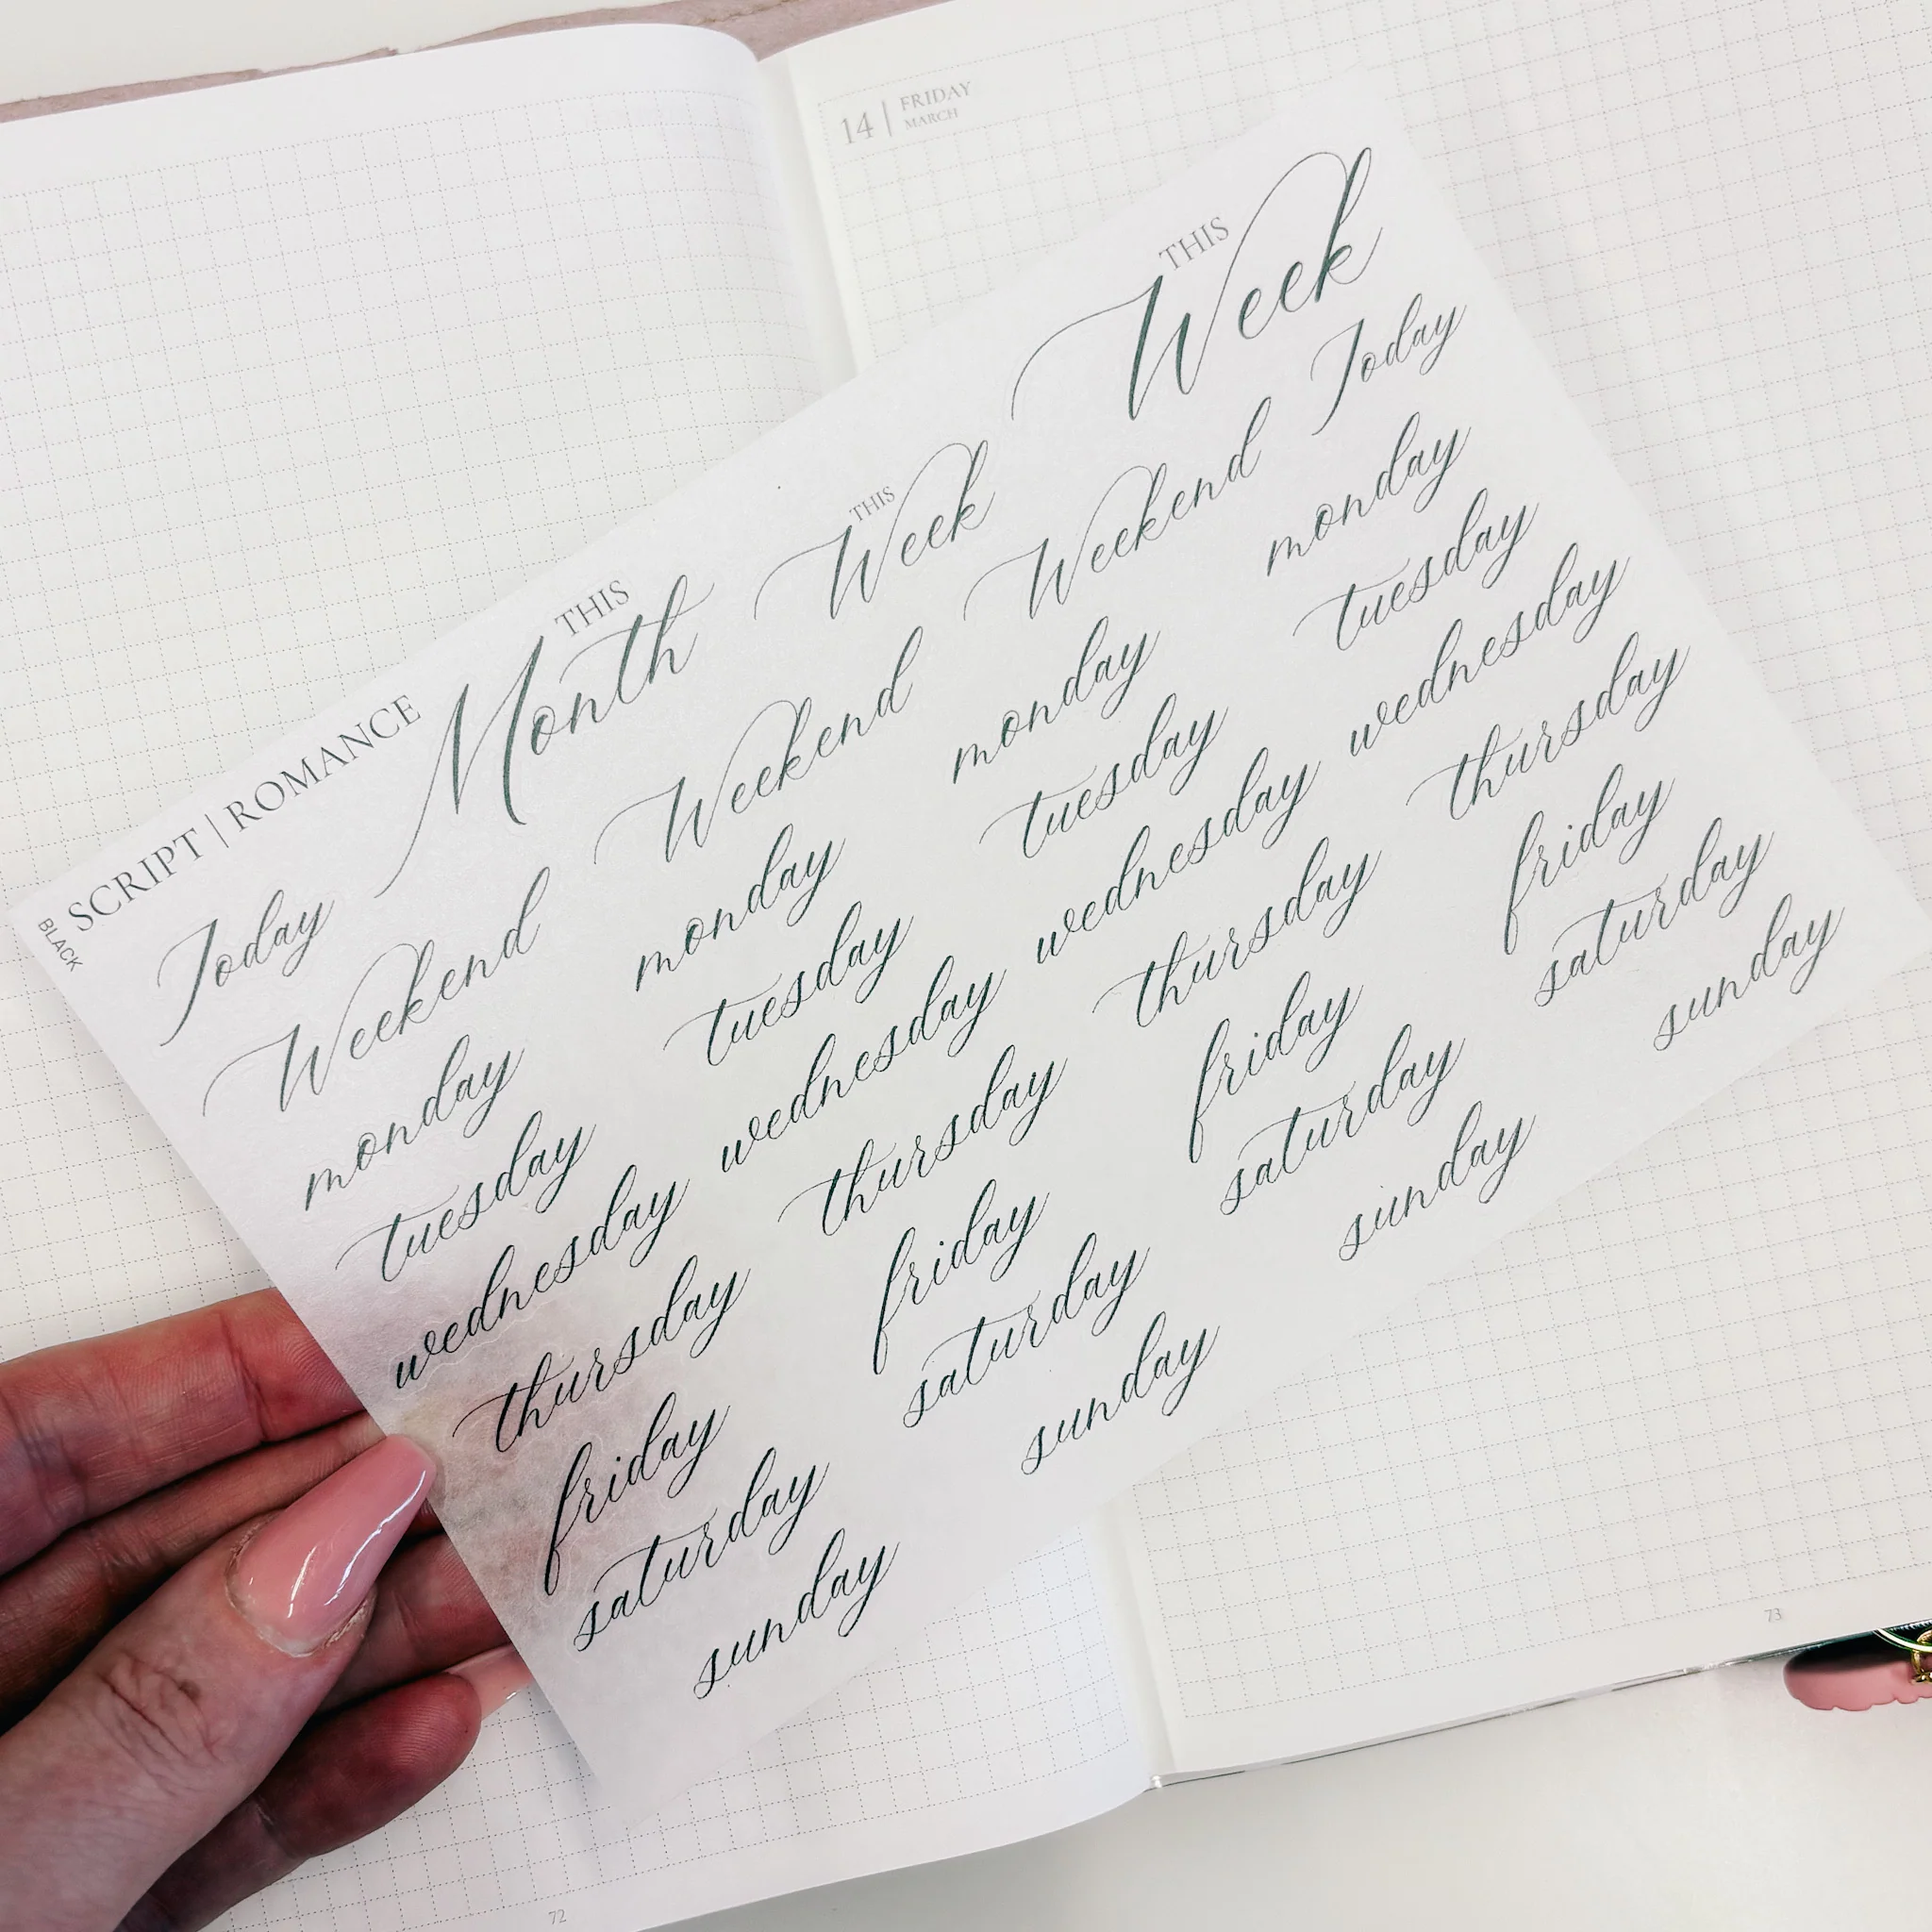 14 | FRIDAY
MARCH
BLACK
SCRIPT | ROMANCE
Today
THIS
Month
THIS
Week
THIS
Week
Weekend Weekend Weekend Today
monday monday monday monday
tuesday tuesday tuesday tuesday
wednesday wednesday wednesday wednesday
thursday thursday thursday thursday
friday friday friday friday
saturday saturday saturday saturday
sunday sunday sunday sunday
72
73